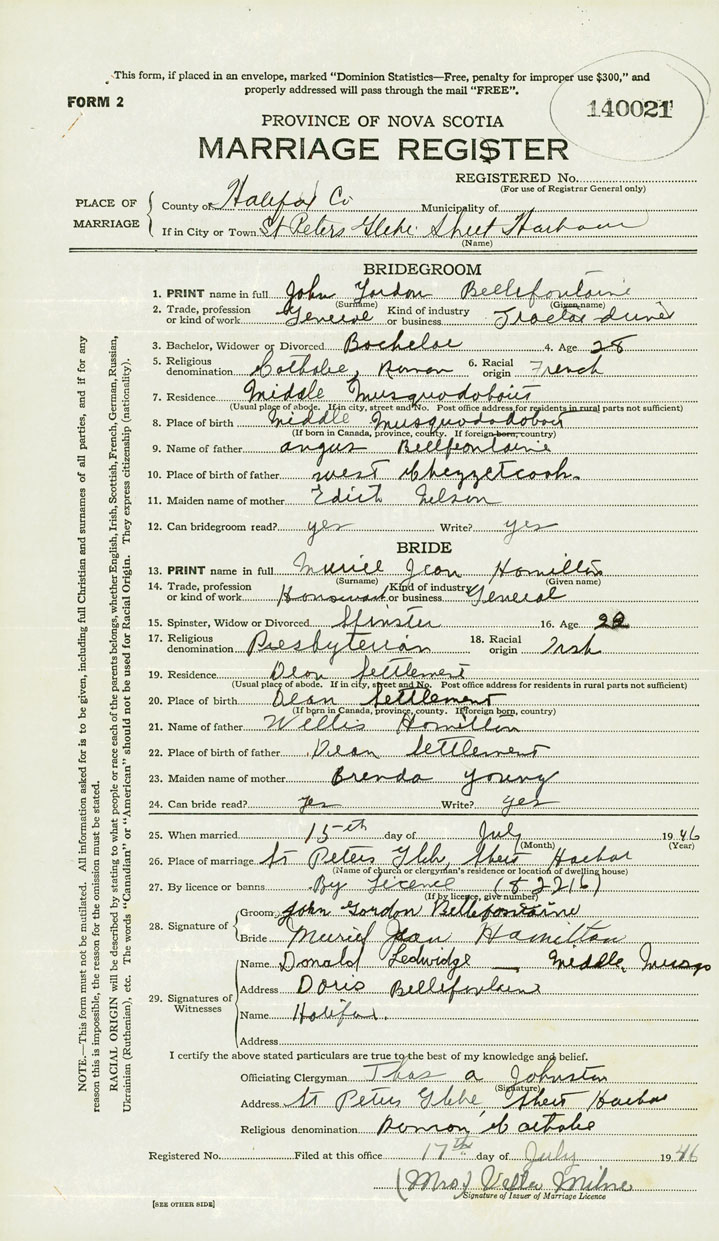 This form, if placed in an envelope, marked “Dominion Statistics—Free, penalty for improper use $300,” and
properly addressed will pass through the mail “FREE”.
FORM 2
140021
PROVINCE OF NOVA SCOTIA
MARRIAGE REGISTER
REGISTERED No.
(For use of Registrar General only)
PLACE OF MARRIAGE
County of Halifax Co Municipality of
If in City or Town St Peters Glebe Sheet Harbour
(Name)
BRIDEGROOM
1. PRINT name in full John Gordon Bellefontaine
(Surname) (Given name)
2. Trade, profession or kind of work General Kind of industry or business Tractor driver
3. Bachelor, Widower or Divorced Bachelor 4. Age 28
5. Religious denomination Catholic, Roman 6. Racial origin French
7. Residence Middle Musquodoboit
(Usual place of abode. If in city, street and No. Post office address for residents in rural parts not sufficient)
8. Place of birth Middle Musquodoboit
(If born in Canada, province, county. If foreign born, country)
9. Name of father Angus Bellfontaine
10. Place of birth of father West Chezzetcook
11. Maiden name of mother Edith Nelson
12. Can bridegroom read? yes Write? yes
BRIDE
13. PRINT name in full Muriel Jean Hamilton
(Surname) (Given name)
14. Trade, profession or kind of work Kind of industry or business General
15. Spinster, Widow or Divorced Spinster 16. Age 22
17. Religious denomination Presbyterian 18. Racial origin Irsh
19. Residence Dean Settlement
(Usual place of abode. If in city, street and No. Post office address for residents in rural parts not sufficient)
20. Place of birth Dean Settlement
(If born in Canada, province, county. If foreign born, country)
21. Name of father Willis Hamilton
22. Place of birth of father Dean Settlement
23. Maiden name of mother Brenda Young
24. Can bride read? Yes Write? yes
25. When married 15th day of July 1946
(Month) (Year)
26. Place of marriage St Peters Glebe, Sheet Harbor
(Name of church or clergyman's residence or location of dwelling house)
27. By licence or banns By Licence (82216)
(If by licence, give number)
28. Signature of
Groom John Gordon Bellefontaine
Bride Muriel Jean Hamilton
29. Signatures of Witnesses
Name Donald Ledwidge — Middle, Musqo
Address Doris Bellefontaine
Name Halifax.
Address
I certify the above stated particulars are true to the best of my knowledge and belief.
Officiating Clergyman Thos a Johnston
(Signature)
Address St Peters Glebe Sheet Harbor
Religious denomination Roman Catholic
Registered No. Filed at this office 17th day of July 1946
(Mrs) Vella Milne
Signature of Issuer of Marriage Licence
[SEE OTHER SIDE]
NOTE.—This form must not be mutilated. All information asked for is to be given, including full Christian and surnames of all parties, and if for any
reason this is impossible, the reason for the omission must be stated.
RACIAL ORIGIN will be described by stating to what people or race each of the parents belongs, whether English, Irish, Scottish, French, German, Russian,
Ukrainian (Ruthenian), etc. The words “Canadian” or “American” should not be used for Racial Origin. They express citizenship (nationality).